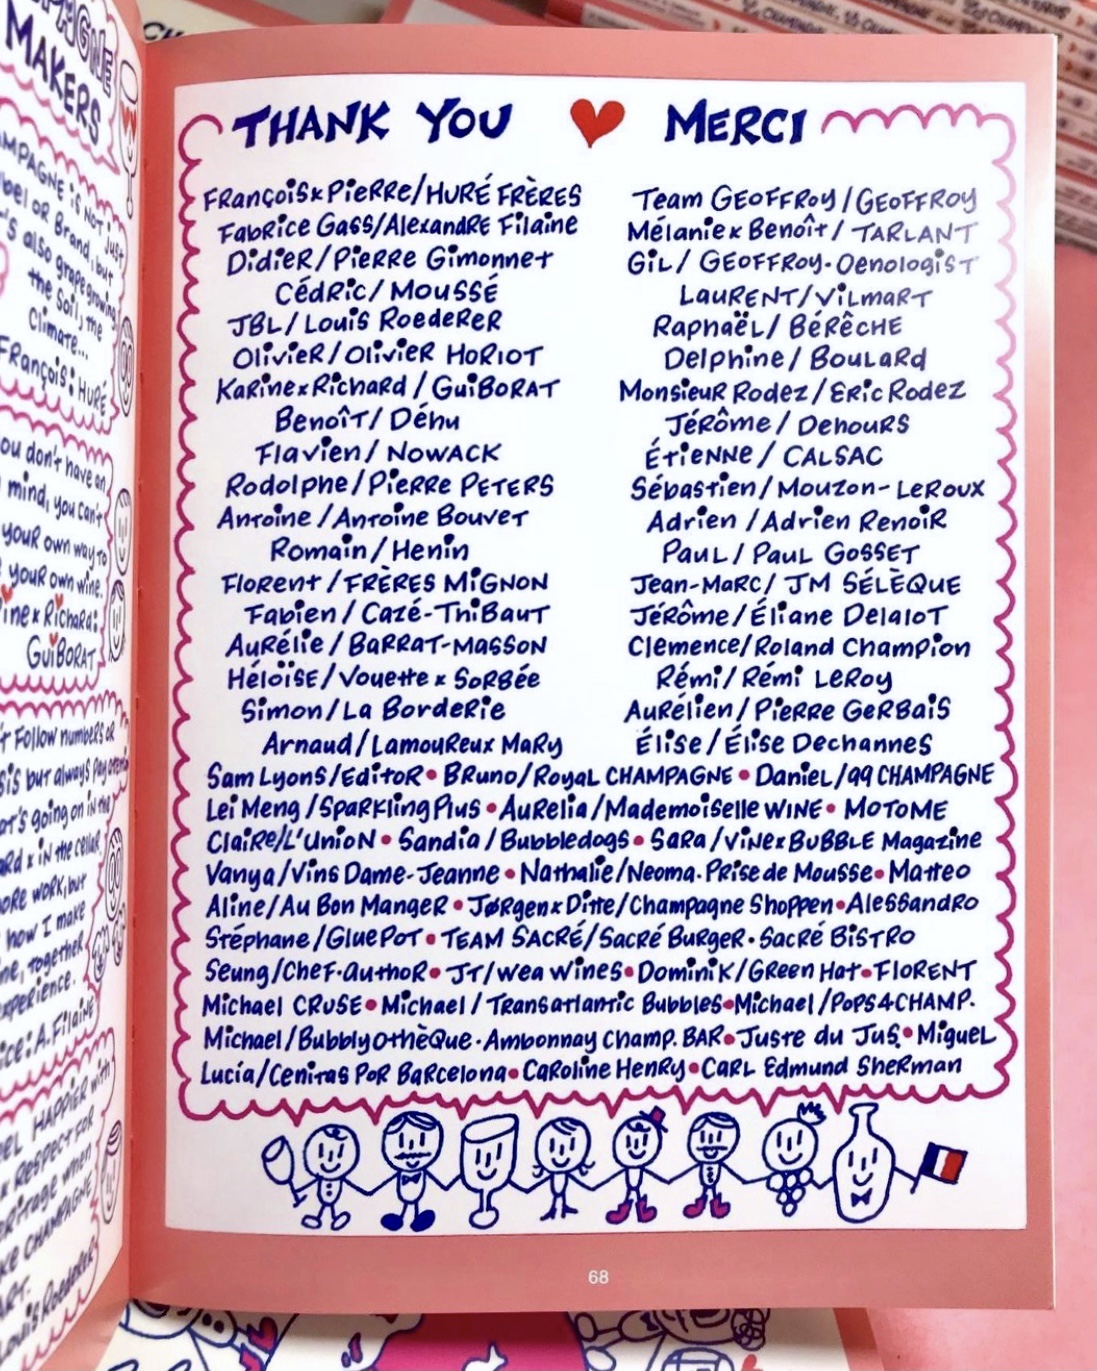 PAGNE
MAKERS
AMPAGNE is NOT just
bel OR Brand, but
'S also grape growing,
the soil, the
Climate...
François: HURÉ
you don't have an
mind, you can't
your own way to
your own wine.
ine x Richard:
GUIBORAT
t Follow numbers or
sis but always pay
at's going on in the
ard x in the cellar
ORE WORK, but
how I make
ine, together
xperience.
ice: A. Filaine
EL HAPPIER with
x RESPECT FOR
heritage when
KE CHAMPAGNE
ART.
Louis Roederer
THANK YOU ♥ MERCI
François x Pierre/HURÉ FRÈRES
Fabrice Gass/Alexandre Filaine
Didier/Pierre Gimonnet
Cédric/Moussé
JBL/Louis Roederer
Olivier/Olivier Horiot
Karine x Richard/Guiborat
Benoît/Déhu
Flavien/Nowack
Rodolphe/Pierre Peters
Antoine/Antoine Bouvet
Romain/Henin
Florent/FRÈRES MIGNON
Fabien/Cazé-Thibaut
Aurélie/Barrat-Masson
Héloïse/Vouette x Sorbée
Simon/La Borderie
Arnaud/Lamoureux Mary
Team GEOFFROY/GEOFFROY
Mélanie x Benoît/TARLANT
Gil/GEOFFROY·Oenologist
Laurent/Vilmart
Raphaël/Bérêche
Delphine/Boulard
Monsieur Rodez/Eric Rodez
Jérôme/Dehours
Étienne/CALSAC
Sébastien/Mouzon-Leroux
Adrien/Adrien Renoir
Paul/Paul Gosset
Jean-Marc/JM SÉLÈQUE
Jérôme/Éliane Delalot
Clemence/Roland Champion
Rémi/Rémi Leroy
Aurélien/Pierre Gerbais
Élise/Élise Dechannes
Sam Lyons/Editor • Bruno/Royal CHAMPAGNE • Daniel/99 CHAMPAGNE
Lei Meng/Sparkling Plus • Aurelia/Mademoiselle WINE • MOTOME
Claire/L'Union • Sandia/Bubbledogs • Sara/Vine x BUBBLE Magazine
Vanya/Vins Dame-Jeanne • Nathalie/Neoma·Prise de Mousse • Matteo
Aline/Au Bon Manger • Jørgen x Ditte/Champagne Shoppen • Alessandro
Stéphane/Glue Pot • TEAM SACRÉ/Sacré Burger·Sacré Bistro
Seung/Chef·author • JT/wea wines • Dominik/Green Hat • FLORENT
Michael CRUSE • Michael/Transatlantic Bubbles • Michael/Pops4CHAMP.
Michael/BubblyOthèque·Ambonnay Champ. BAR • Juste du Jus • Miguel
Lucía/Cenitas Por Barcelona • Caroline Henry • Carl Edmund Sherman
68